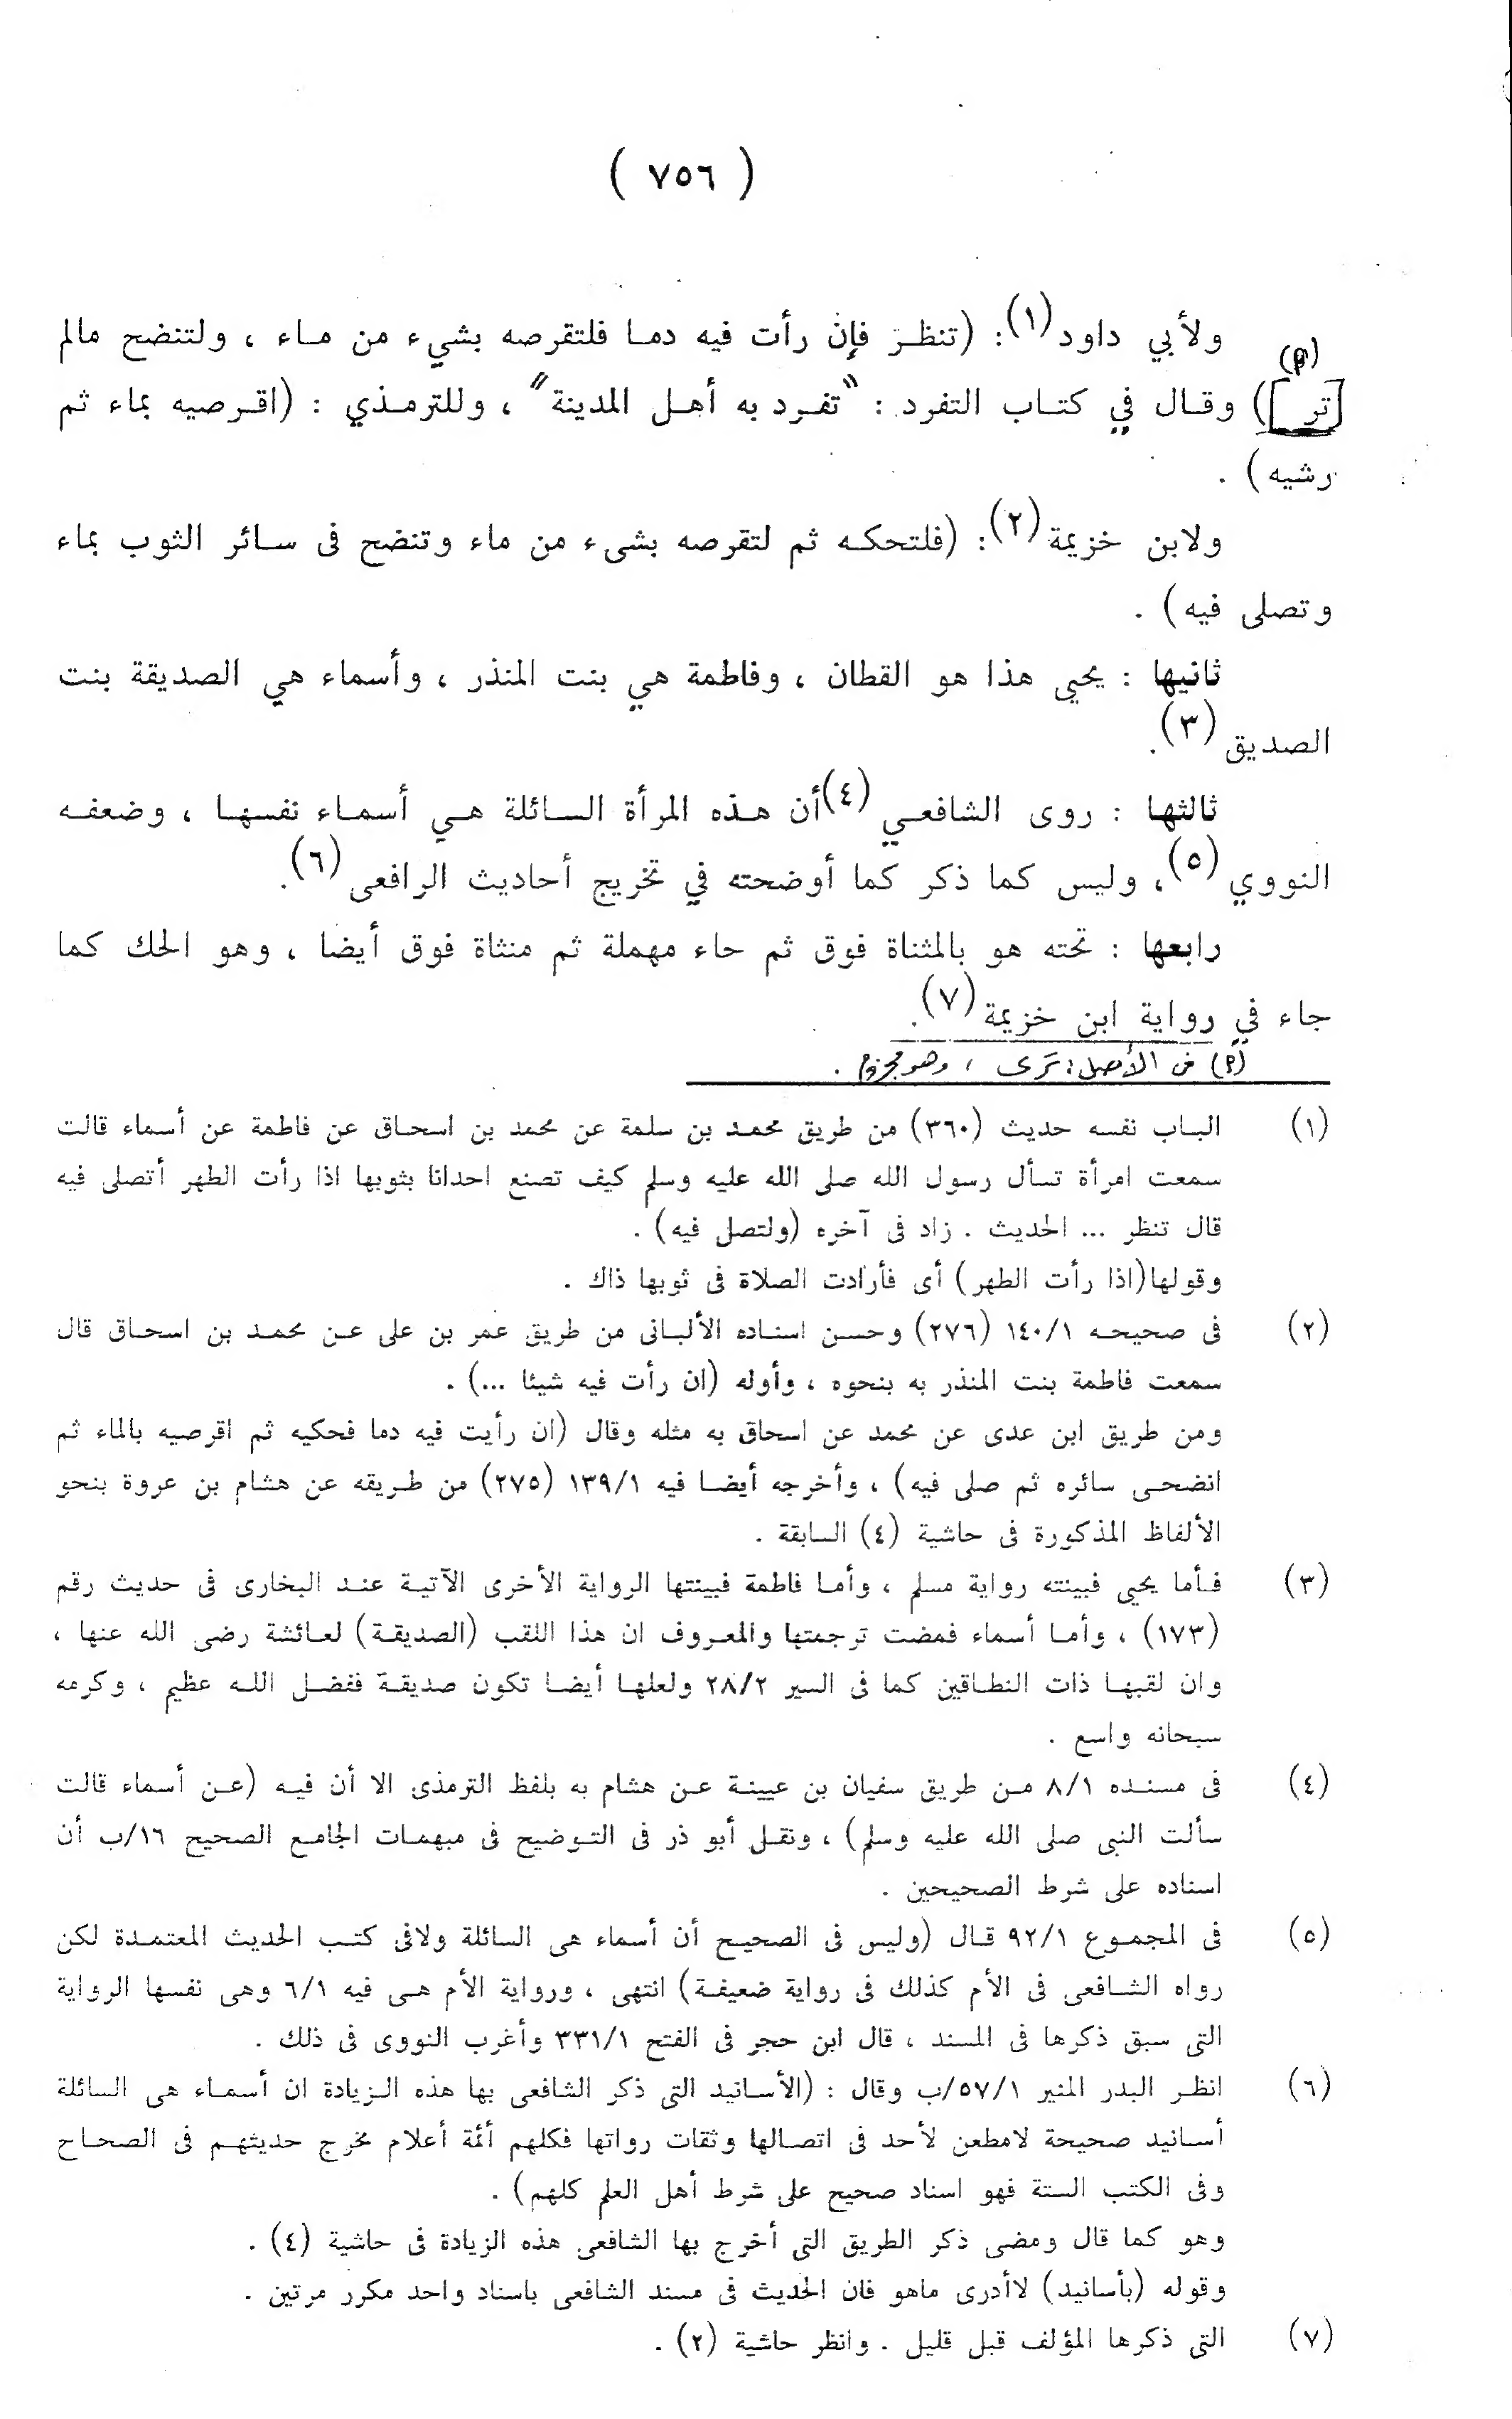 ( ٧٥٦ )
ولأبي داود (١): (تنظر فإن رأت فيه دما فلتقرصه بشيء من ماء ، ولتنضح مالم
[تر] (٩)) وقال في كتاب التفرد : "تفرد به أهل المدينة" ، وللترمذي : (اقرصيه بماء ثم
رشيه) .
ولابن خزيمة (٢): (فلتحكه ثم لتقرصه بشىء من ماء وتنضح فى سائر الثوب بماء
وتصلى فيه) .
ثانيها : يحيى هذا هو القطان ، وفاطمة هي بنت المنذر ، وأسماء هي الصديقة بنت
الصديق (٣).
ثالثها : روى الشافعي (٤) أن هذه المرأة السائلة هي أسماء نفسها ، وضعفه
النووي (٥)، وليس كما ذكر كما أوضحته في تخريج أحاديث الرافعى (٦).
رابعها : تحته هو بالمثناة فوق ثم حاء مهملة ثم منثاة فوق أيضا ، وهو الحك كما
جاء في رواية ابن خزيمة (٧).
(٩) فى الأصل : ترى ، وهو مجزوم .
(١) الباب نفسه حديث (٣٦٠) من طريق محمد بن سلمة عن محمد بن اسحاق عن فاطمة عن أسماء قالت
سمعت امرأة تسأل رسول الله صلى الله عليه وسلم كيف تصنع احدانا بثوبها اذا رأت الطهر أتصلى فيه
قال تنظر ... الحديث . زاد فى آخره (ولتصل فيه) .
وقولها(اذا رأت الطهر) أى فأرادت الصلاة فى ثوبها ذاك .
(٢) فى صحيحه ١٤٠/١ (٢٧٦) وحسن اسناده الألبانى من طريق عمر بن على عن محمد بن اسحاق قال
سمعت فاطمة بنت المنذر به بنحوه ، وأوله (ان رأت فيه شيئا ...) .
ومن طريق ابن عدى عن محمد عن اسحاق به مثله وقال (ان رأيت فيه دما فحكيه ثم اقرصيه بالماء ثم
انضحى سائره ثم صلى فيه) ، وأخرجه أيضا فيه ١٣٩/١ (٢٧٥) من طريقه عن هشام بن عروة بنحو
الألفاظ المذكورة فى حاشية (٤) السابقة .
(٣) فأما يحيى فبينته رواية مسلم ، وأما فاطمة فبينتها الرواية الأخرى الآتية عند البخارى فى حديث رقم
(١٧٣) ، وأما أسماء فمضت ترجمتها والمعروف ان هذا اللقب (الصديقة) لعائشة رضى الله عنها ،
وان لقبها ذات النطاقين كما فى السير ٢٨/٢ ولعلها أيضا تكون صديقة ففضل الله عظيم ، وكرمه
سبحانه واسع .
(٤) فى مسنده ٨/١ من طريق سفيان بن عيينة عن هشام به بلفظ الترمذى الا أن فيه (عن أسماء قالت
سألت النبى صلى الله عليه وسلم) ، ونقل أبو ذر فى التوضيح فى مبهمات الجامع الصحيح ١٦/ب أن
اسناده على شرط الصحيحين .
(٥) فى المجموع ٩٢/١ قال (وليس فى الصحيح أن أسماء هى السائلة ولافى كتب الحديث المعتمدة لكن
رواه الشافعى فى الأم كذلك فى رواية ضعيفة) انتهى ، ورواية الأم هى فيه ٦/١ وهى نفسها الرواية
التى سبق ذكرها فى المسند ، قال ابن حجر فى الفتح ٣٣١/١ وأغرب النووى فى ذلك .
(٦) انظر البدر المنير ٥٧/١/ب وقال : (الأسانيد التى ذكر الشافعى بها هذه الزيادة ان أسماء هى السائلة
أسانيد صحيحة لامطعن لأحد فى اتصالها وثقات رواتها فكلهم أئمة أعلام مخرج حديثهم فى الصحاح
وفى الكتب الستة فهو اسناد صحيح على شرط أهل العلم كلهم) .
وهو كما قال ومضى ذكر الطريق التى أخرج بها الشافعى هذه الزيادة فى حاشية (٤) .
وقوله (بأسانيد) لاأدرى ماهو فان الحديث فى مسند الشافعى باسناد واحد مكرر مرتين .
(٧) التى ذكرها المؤلف قبل قليل . وانظر حاشية (٢) .